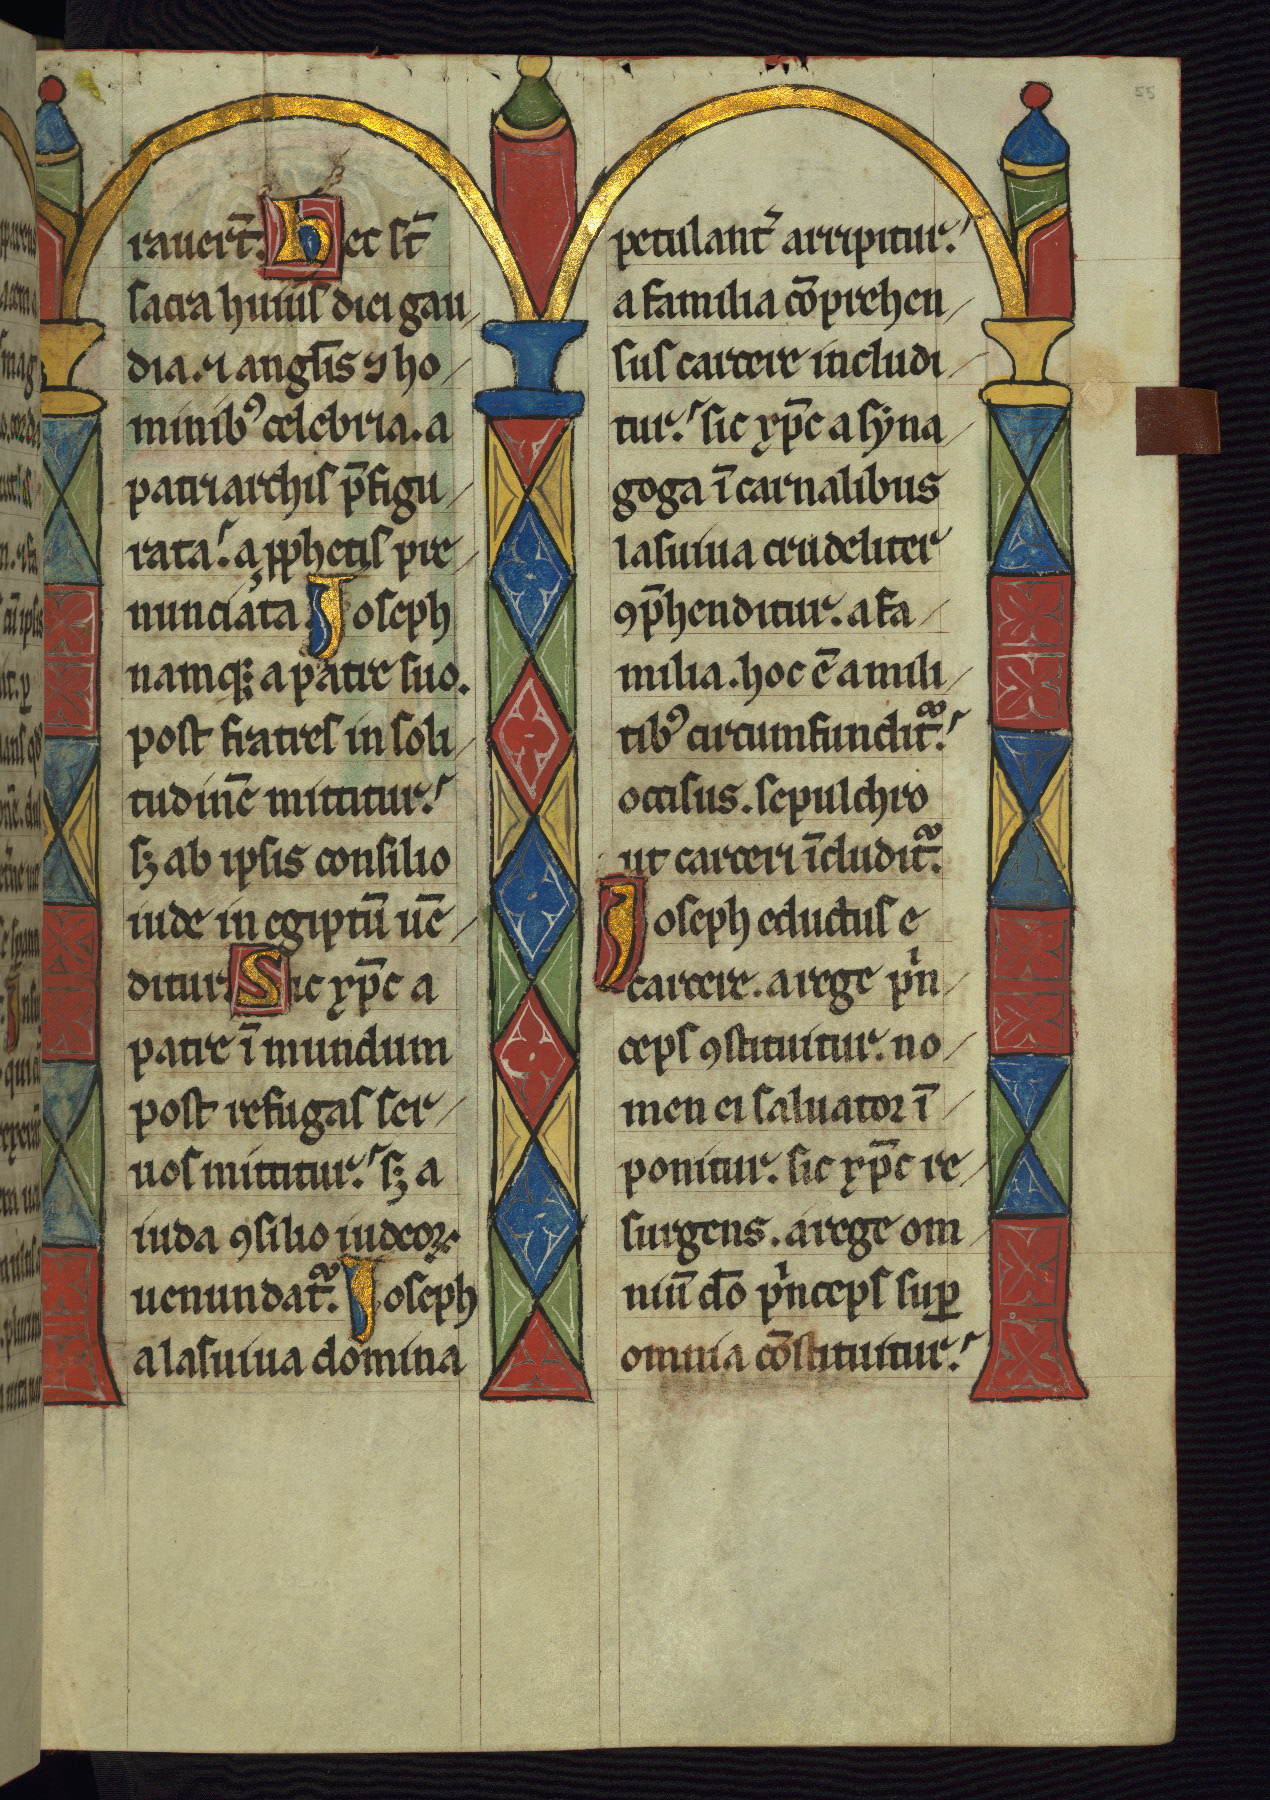 55
rauert̄. hec st̄
sacra huius diei gau
dia. ⁊ anglis̄ ꝯ ho
minibꝰ celebria. a
patriarchis p̄figu
rata. a ꝓphetis pre
nunciata. Ioseph
namqꝫ a patre suo.
post fratres in soli
tudinē mittitur.
sꝫ ab ipsis consilio
iude in egiptū uē
ditur. Sic xp̄c a
patre ī mundum
post refugas ser
uos mittitur. sꝫ a
iuda ꝯsilio iudeoꝝ
uenundat̄. Ioseph
a lasciua domina
petulant̄ arripitur.
a familia cōprehen
sus carcere includi
tur. sic xp̄c a syna
goga ī carnalibus
lasciua crudeliter
ꝯp̄henditur. a fa
milia. hoc ē a mili
tibꝰ circumfundit̄.
occisus. sepulchro
ut carceri īcludit̄.
Ioseph eductus e
carcere. a rege pͥn
ceps ꝯstituitur. no
men ei saluator ī
ponitur. sic xp̄c re
surgens. a rege om
niū dō pͥnceps suꝑ
omnia cōstituitur.